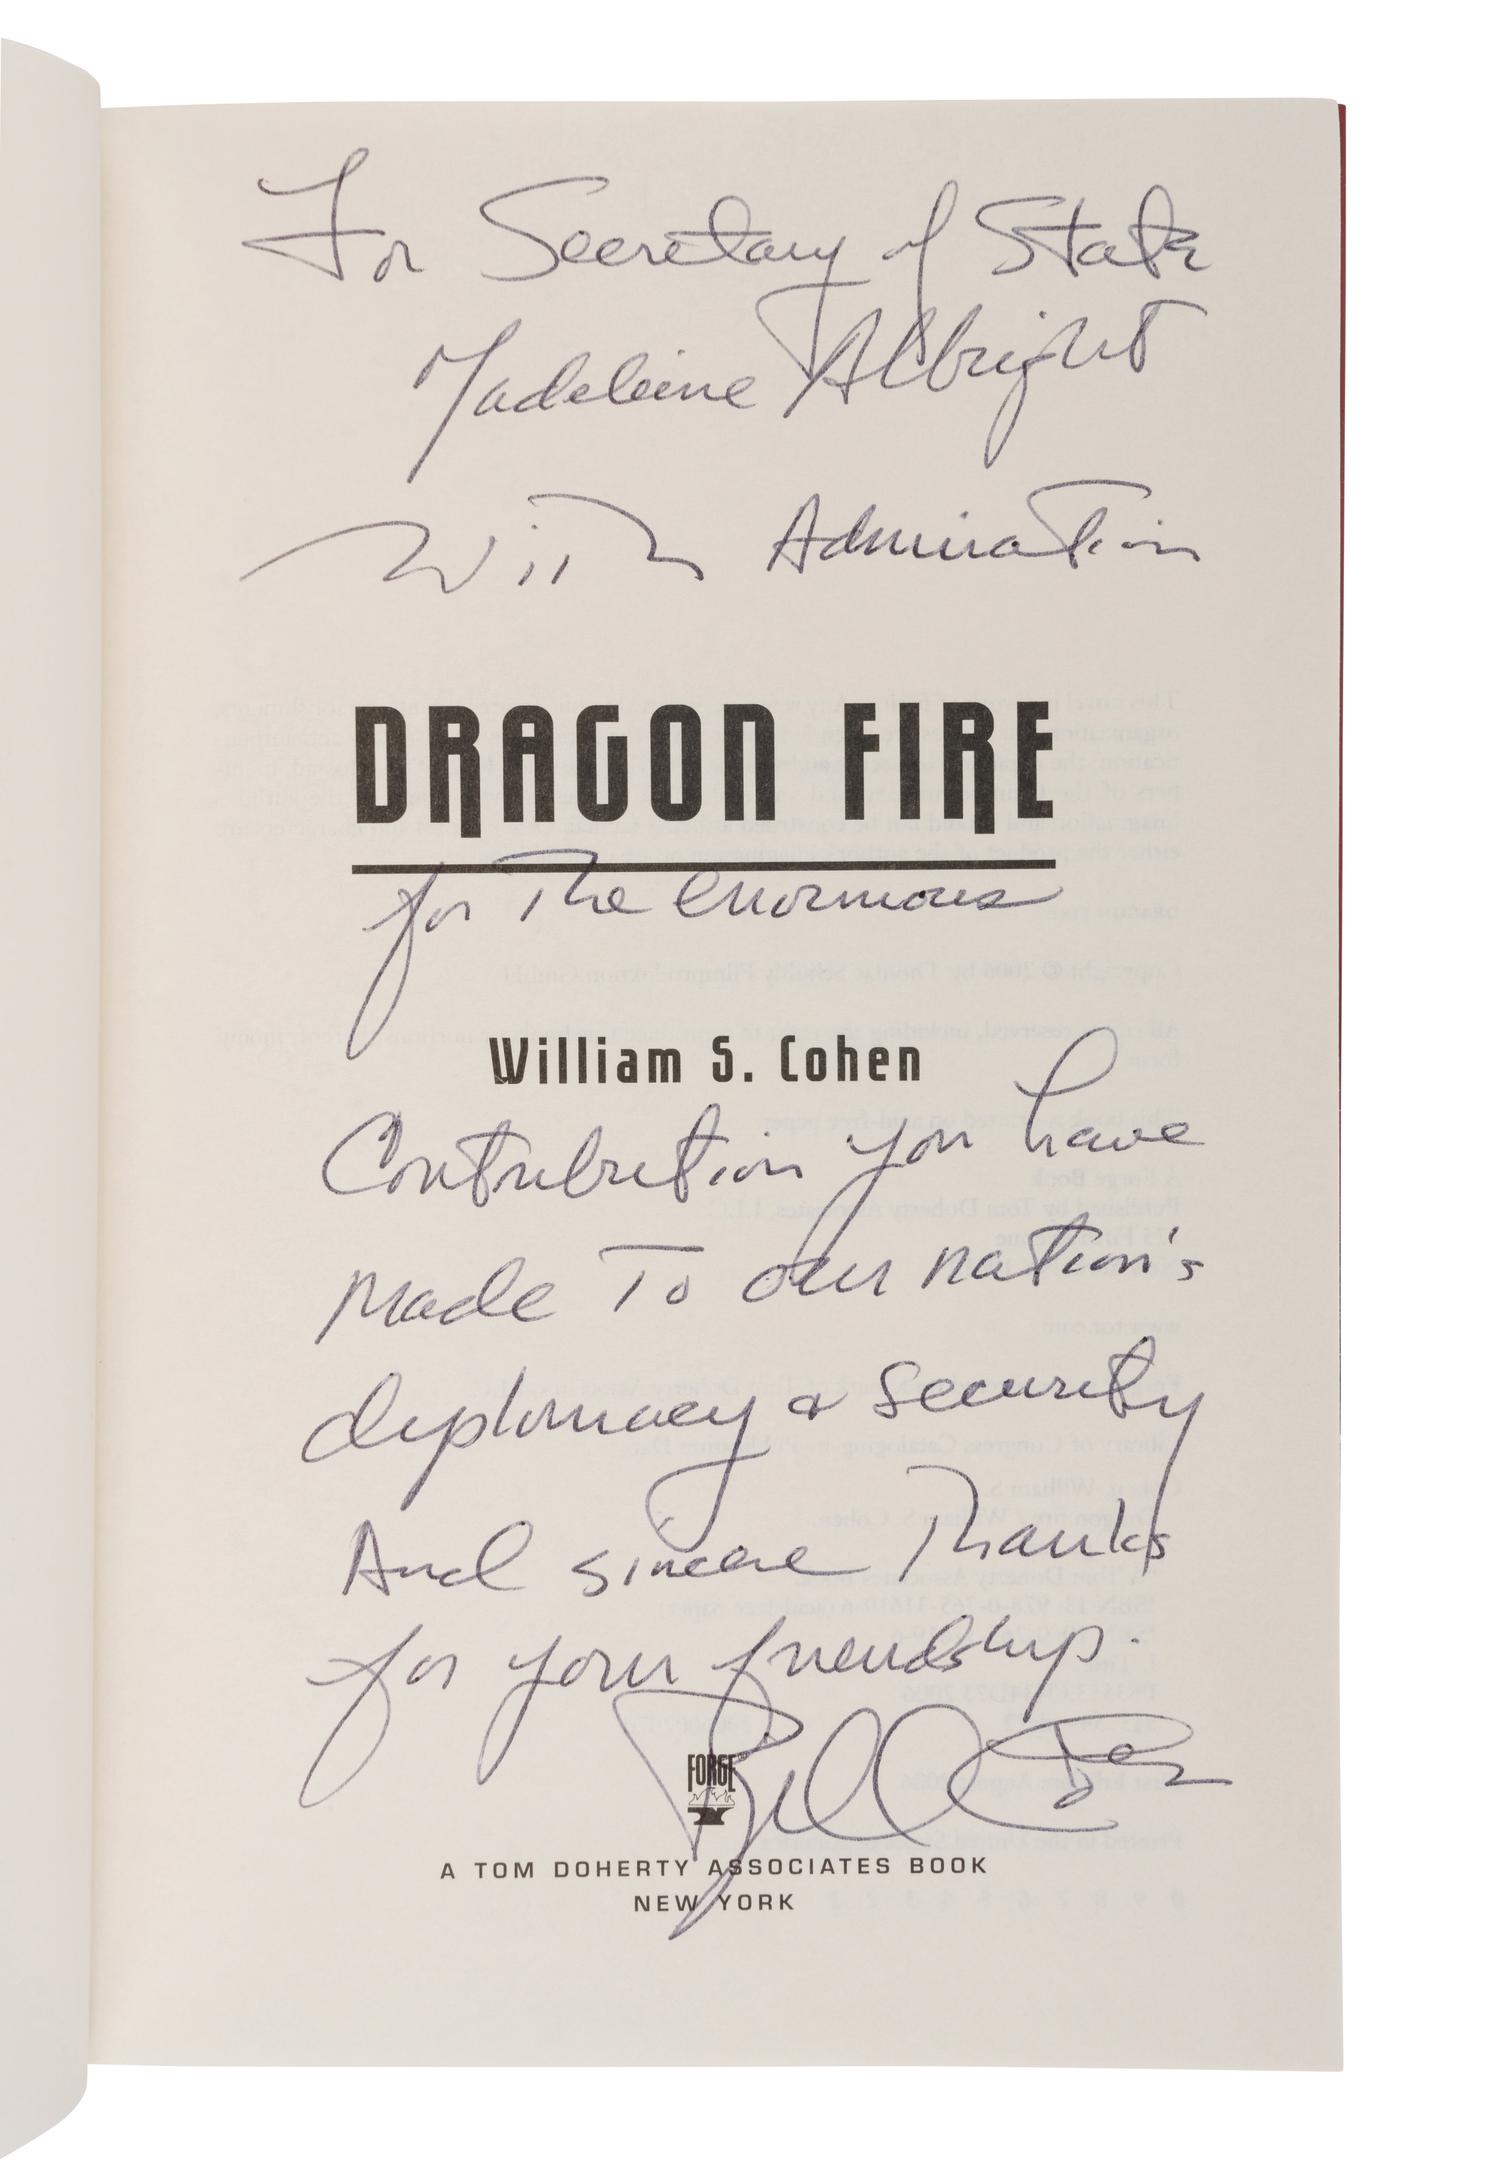 For Secretary of State
Madeleine Albright
With Admiration
DRAGON FIRE
for The enormous
William S. Cohen
Contribution you have
made To our nation's
diplomacy & security
And sincere Thanks
for your friendship.
Bill Cohen
FORGE
A TOM DOHERTY ASSOCIATES BOOK
NEW YORK